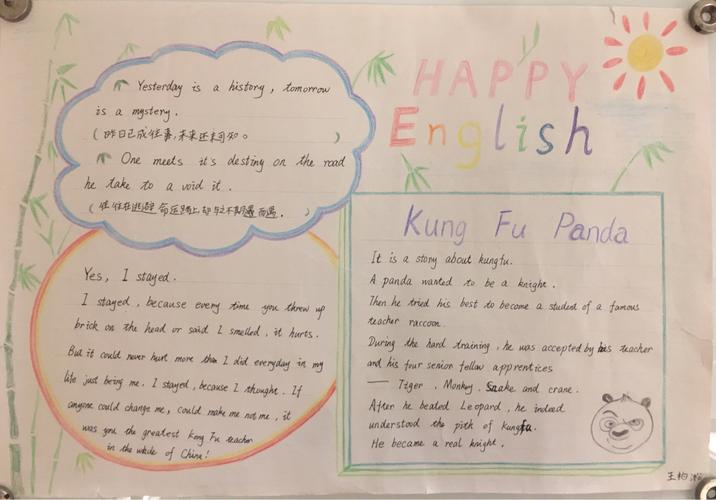 HAPPY
English
Yesterday is a history, tomorrow
is a mystery.
(昨日已成往事,未来还未可知。)
One meets it's destiny on the road
he take to a void it.
(往往在逃避命运路上,却与之不期遇而遇.)
Yes, I stayed.
I stayed, because every time you threw up
brick on the head or said I smelled, it hurts.
But it could never hurt more than I did everyday in my
life just being me. I stayed, because I thought. If
anyone could change me, could make me not me, it
was you the greatest kong Fu teacher
in the whole of China!
Kung Fu Panda
It is a story about kungfu.
A panda wanted to be a knight.
Then he tried his best to become a student of a famous
teacher raccoon.
During the hard training, he was accepted by his teacher
and his four senior fellow apprentices
—— Tiger, Monkey, Snake and crane.
After he beated Leopard, he indeed
understood the pith of kungfu.
He became a real knight.
王柏